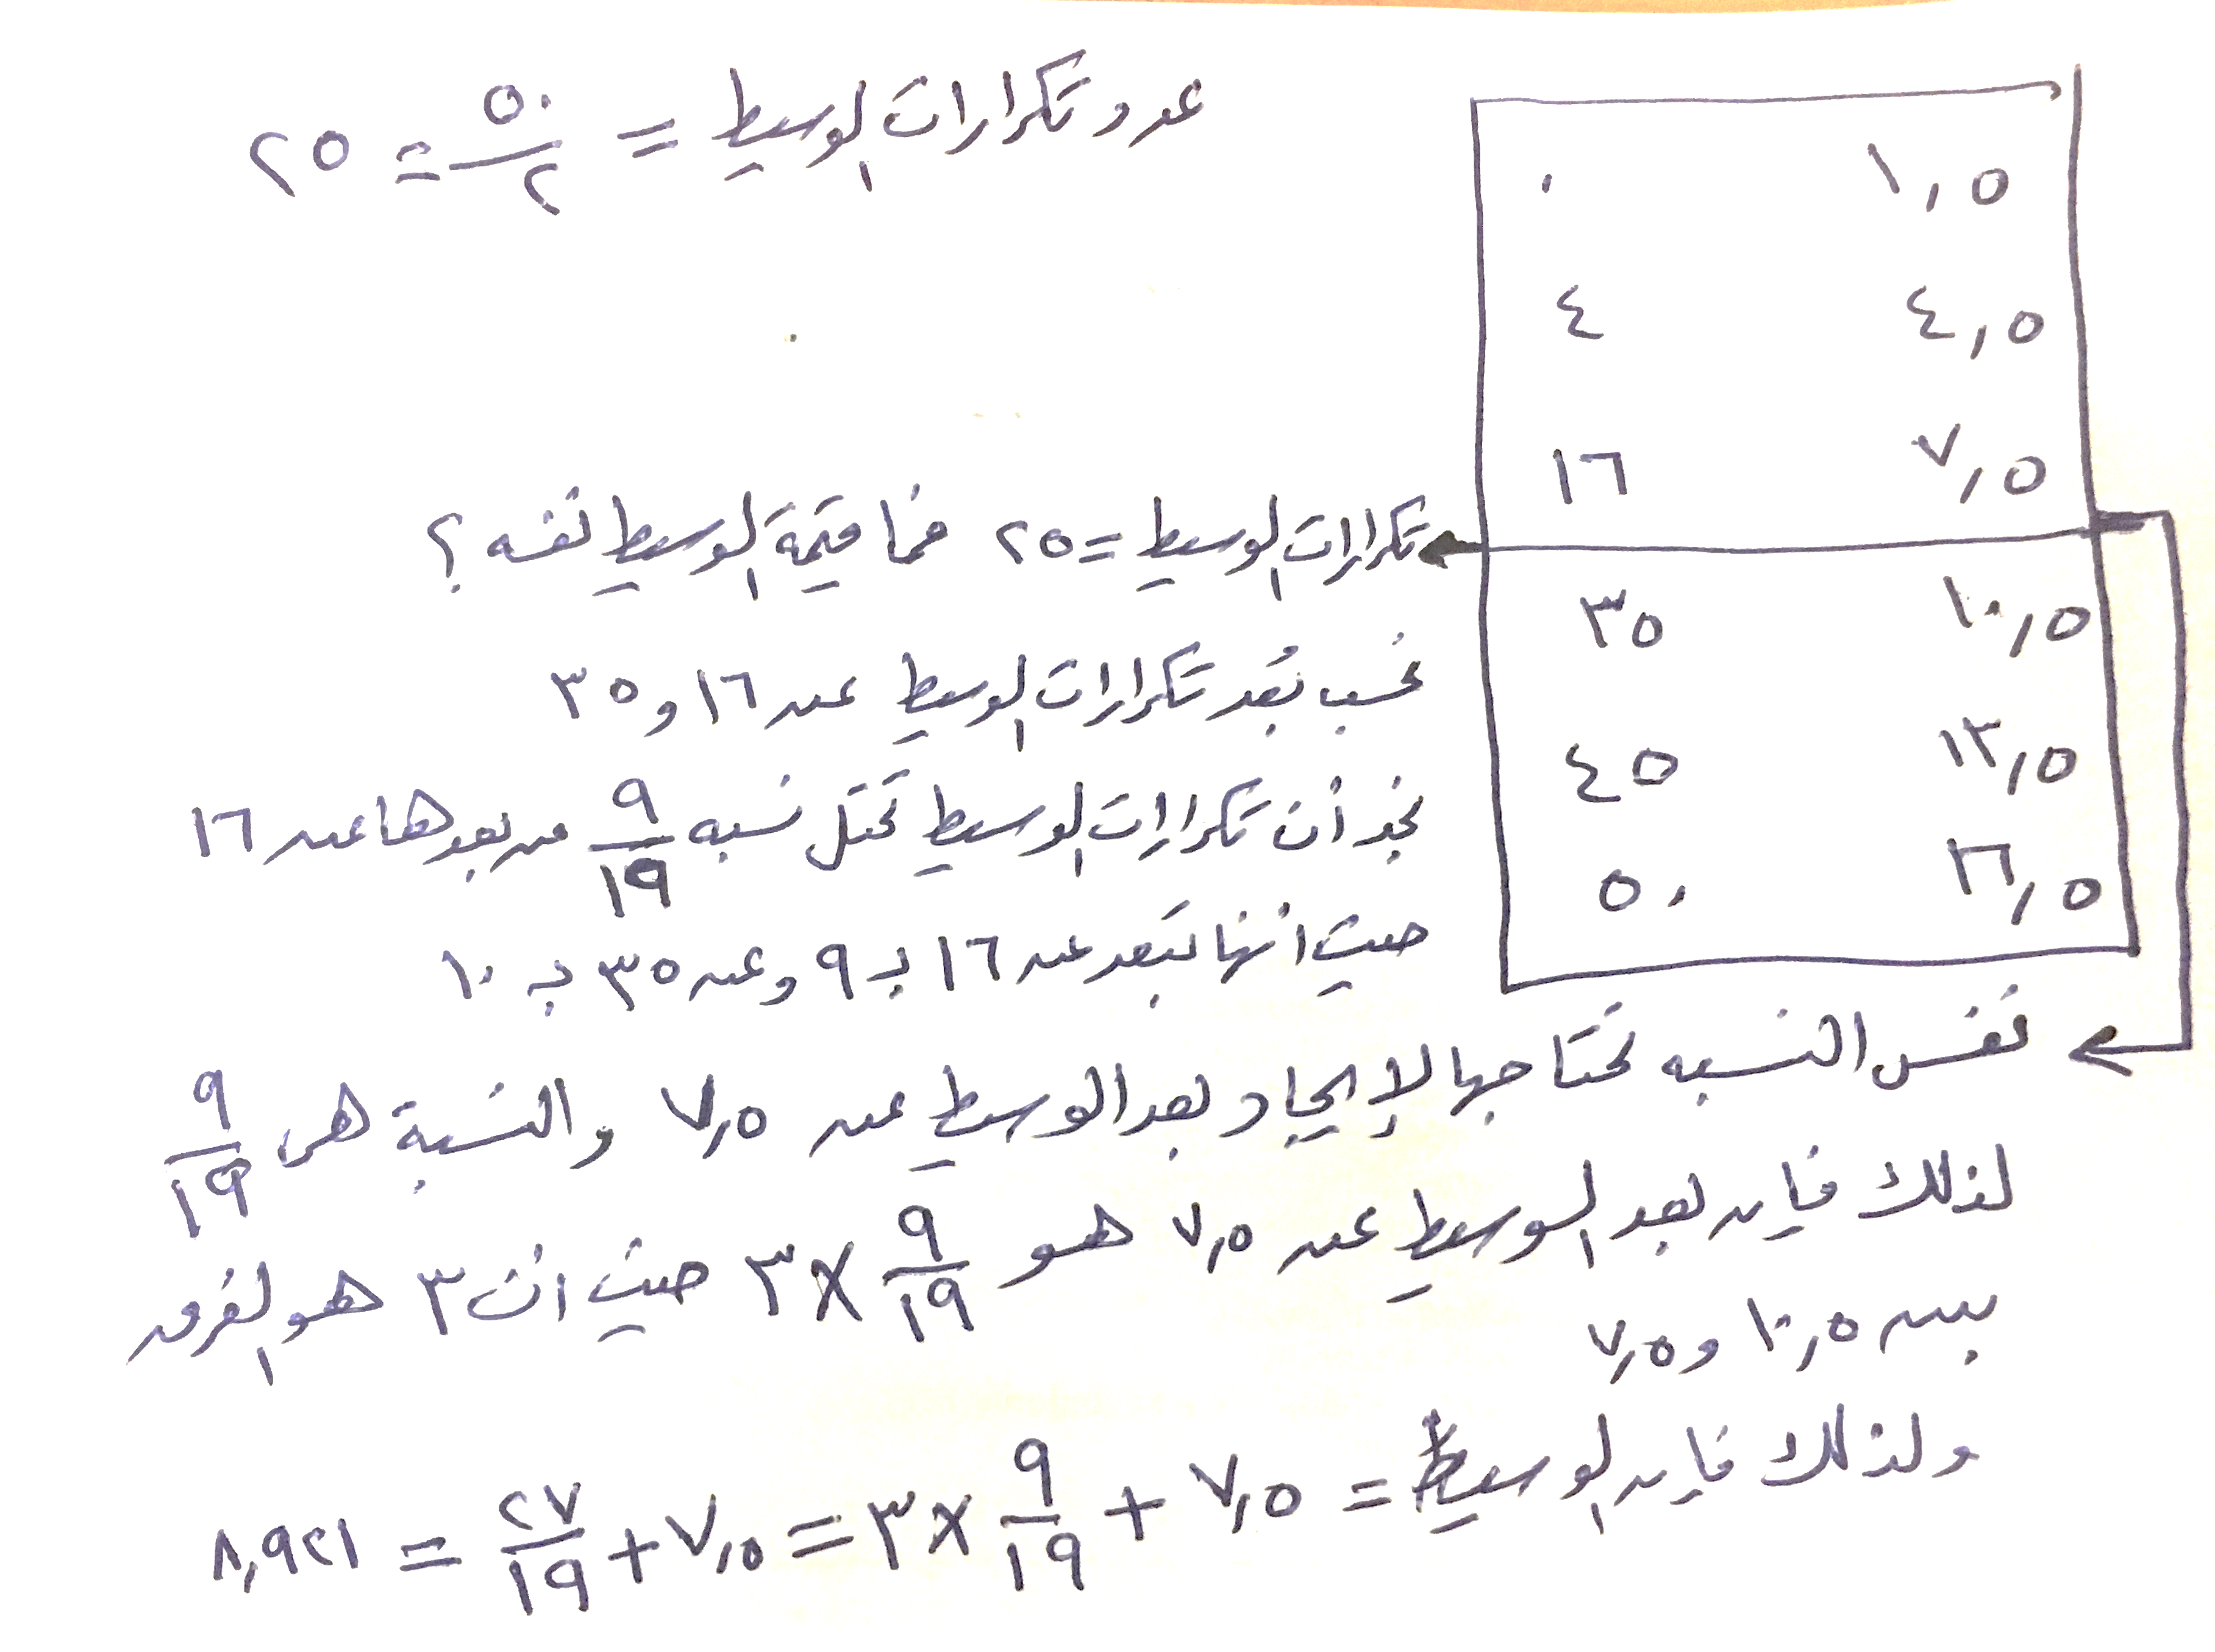 عدد تكرارات الوسيط = ٥٠/٢ = ٢٥
١,٥ ٠
٤,٥ ٤
٧,٥ ١٦
تكرارات الوسيط = ٢٥ فما قيمة الوسيط نفسه ؟
١٠,٥ ٣٥
١٣,٥ ٤٥
١٦,٥ ٥٠
نحسب بُعد تكرارات الوسيط عن ١٦ و ٣٥
نجد أن تكرارات الوسيط تحتل نسبه ٩/١٩ من بعدها عن ١٦
حيث انها تبعد عن ١٦ بـ ٩ وعن ٣٥ بـ ١٠
نفس النسبه نحتاجها لإيجاد بعد الوسيط عن ٧,٥ والنسبة هى ٩/١٩
لذلك فإن بعد الوسيط عن ٧,٥ هو ٩/١٩ × ٣ حيث ان ٣ هو الفرق
بين ١٠,٥ و ٧,٥
ولذلك فإن الوسيط = ٧,٥ + ٩/١٩ × ٣ = ٧,٥ + ٢٧/١٩ = ٨,٩٢١